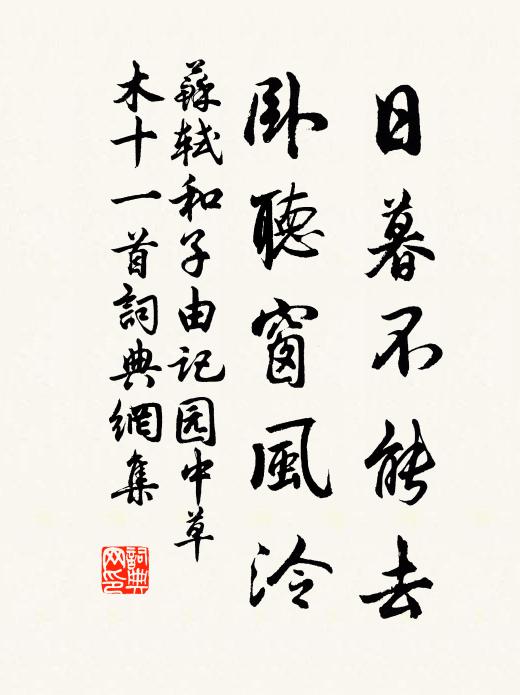 日暮不能去
卧聽窗風泠
蘇軾和子由記园中草
木十一首詞典網集
詞典網印